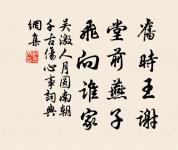 舊時王謝
堂前燕子
飛向誰家
吳激人月圓南朝
千古傷心事詞典
網集